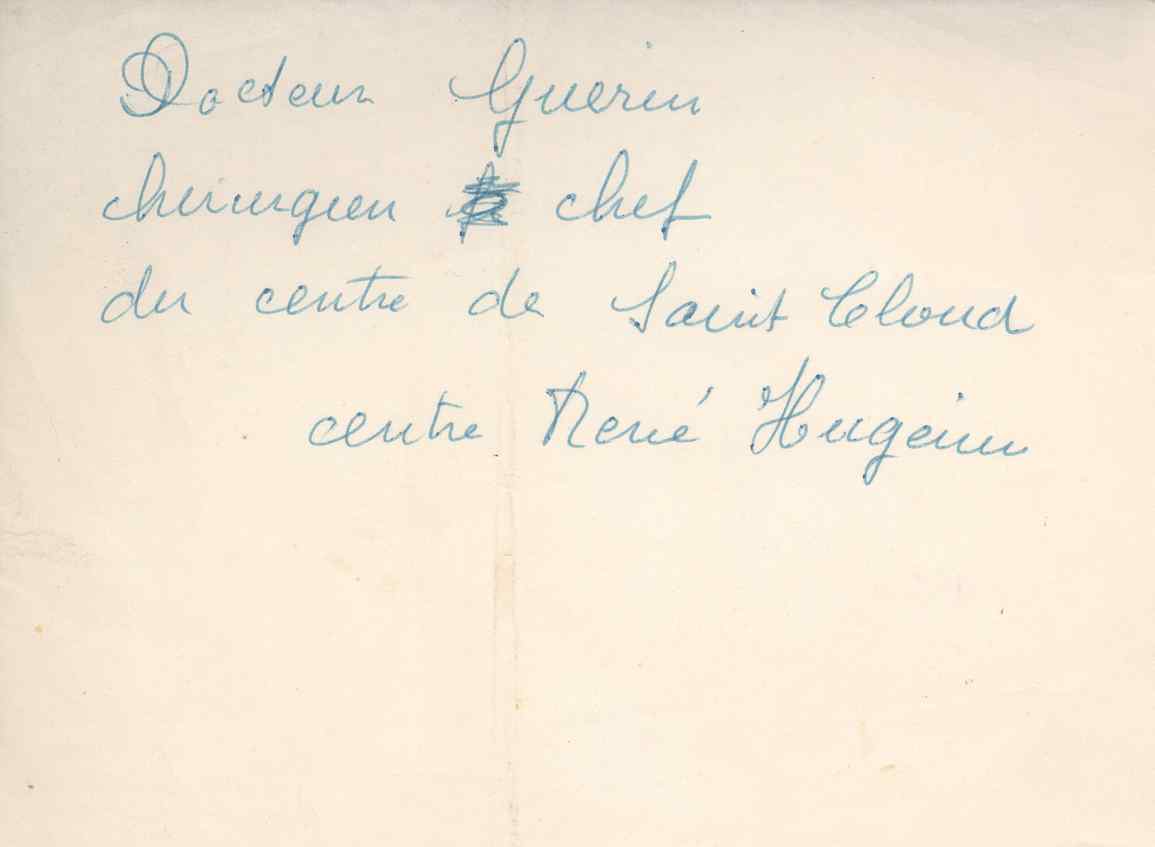 Docteur Guerin
chirurgien chef
du centre de Saint Cloud
centre René Hugenin